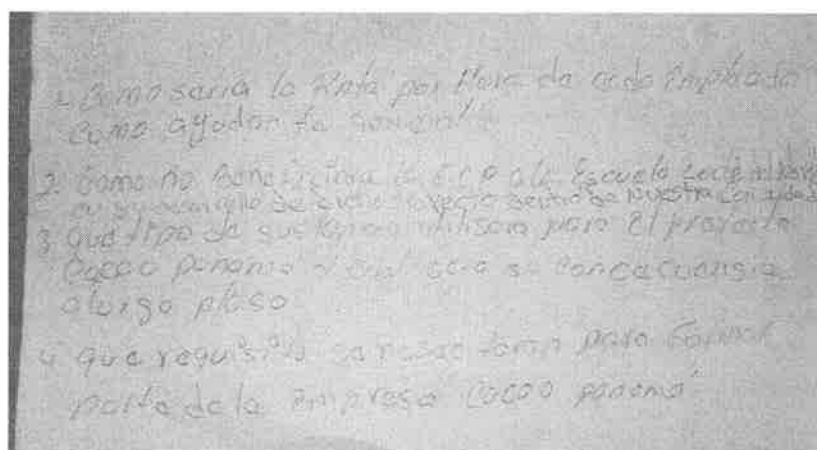 1. Como seria la Rata por Hora de cada Empleado
Como ayudante general
2. Como no beneficiara la ECP a la Escuela
de dicho proyecto dentro de nuestra comunidad
3 Que tipo de utilisara para El projecto
Cocoo panamá y cual sera su concecuensia
a largo plaso
4 que requisito se nesesitaran para formar
parte de la Empresa Cocoo panamá